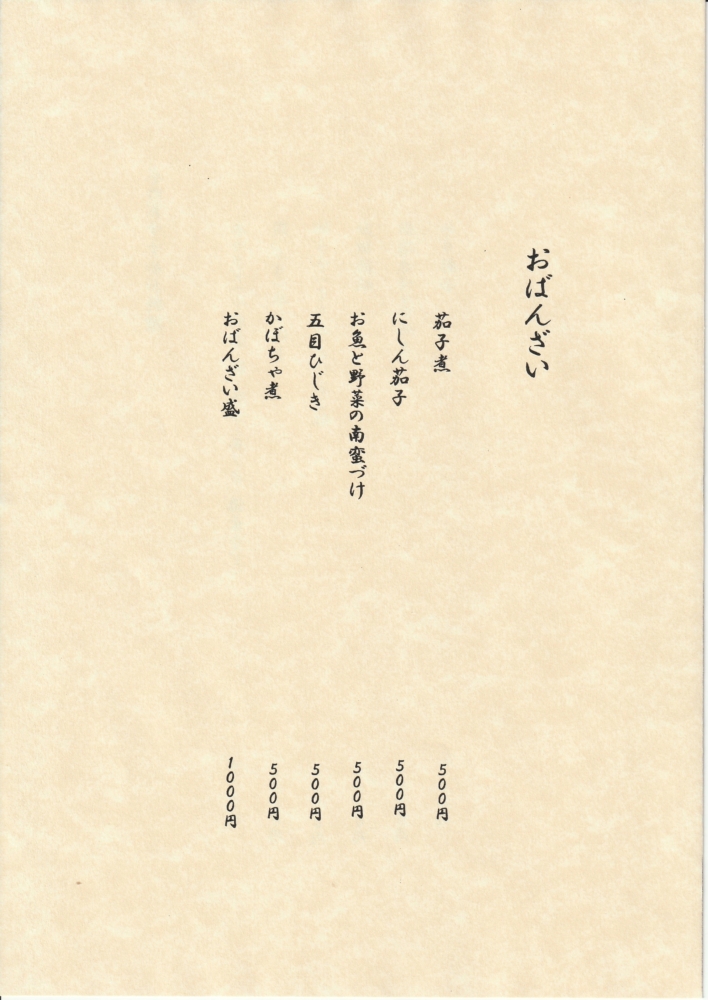 おばんざい
茄子煮 500円
にしん茄子 500円
お魚と野菜の南蛮づけ 500円
五目ひじき 500円
かぼちゃ煮 500円
おばんざい盛 1000円